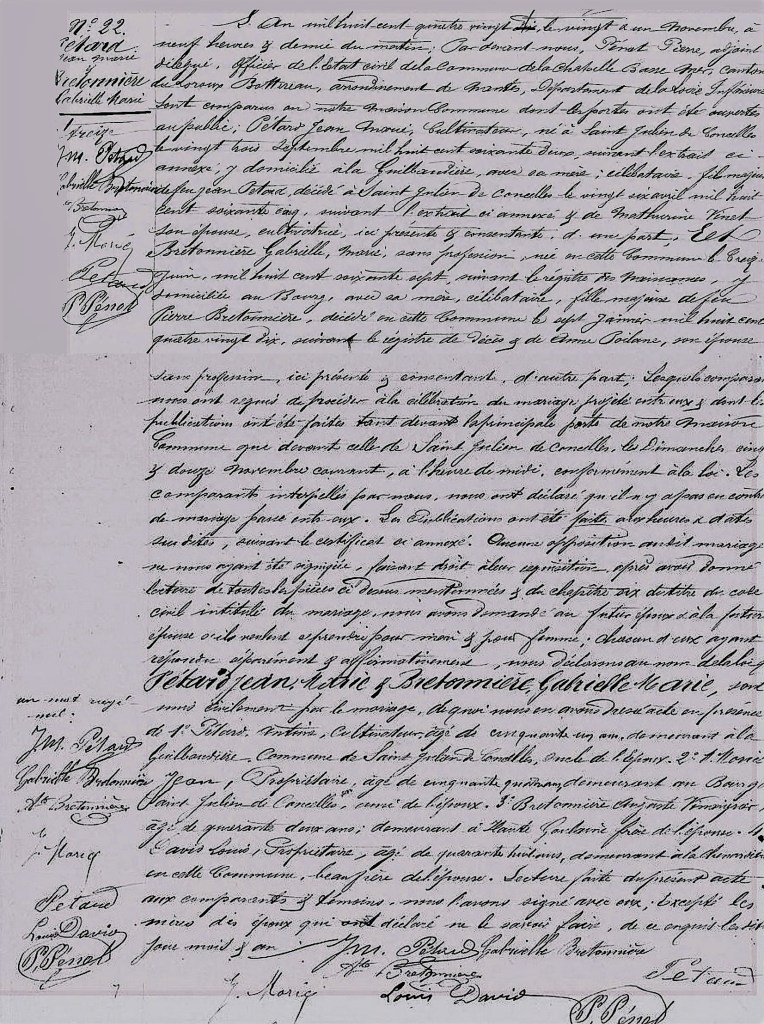 N° 22.
Pétard
Jean Marie
&
Bretonnière
Gabrielle Marie
treize
J.M. Pétard
Gabrielle Bretonnière
Bretonnière
J. Moriç
Petard
P. Pénot
L'An mil huit cent quatre vingt dix, le vingt & un Novembre, à
neuf heures & demie du matin; Par devant nous, Pénot Pierre, adjoint
délégué, Officier de l'Etat civil de la Commune de la Chapelle Basse Mer, canton
du Loroux Bottereau, arrondissement de Nantes, Département de la Loire Inférieure
sont comparus en notre maison Commune dont les portes ont été ouvertes
au public; Pétard Jean Marie, Cultivateur, né à Saint Julien de Concelles
le vingt trois Septembre mil huit cent soixante deux, suivant l'extrait ci-
annexé, y domicilié à la Guilbaudière, avec sa mère; célibataire, fils majeur
de feu Jean Pétard, décédé à Saint Julien de Concelles le vingt six avril mil huit
cent soixante cinq, suivant l'extrait ci annexé & de Mathurine Vinet
son épouse, cultivatrice, ici présente & consentante, d'une part, Et
Bretonnière Gabrielle, Marie, sans profession, née en cette Commune le treize
Juin, mil huit cent soixante sept, suivant le registre des Naissances, y
domiciliée au Bourg, avec sa mère, célibataire, fille majeure de feu
Pierre Bretonnière, décédé en cette Commune le sept Janvier mil huit cent
quatre vingt dix, suivant le régistre de décès & de Anne Poilane, son épouse
sans profession, ici présente & consentant, d'autre part; Lesquels comparants
nous ont requis de procéder à la célébration du mariage projeté entr'eux & dont les
publications ont été faites tant devant la principale porte de notre Maison
Commune que devant celle de Saint Julien de Concelles, les Dimanches, cinq
& douze Novembre courant, à l'heure de midi, conformément à la loi. Les
comparants interpellés par nous, nous ont déclaré qu'il n'y a pas eu contrat
de mariage passé entr'eux. Les Publications ont été faites aux heures & dates
susdites, suivant le certificat ci annexé. Aucune opposition audit mariage
ne nous ayant été signifiée, faisant droit à leur réquisition, après avoir donné
lecture de toutes les pièces ci dessus mentionnées & du chapître six du titre du code
civil intitulé du mariage, nous avons demandé au futur époux & à la future
épouse s'ils veulent se prendre pour mari & pour femme; chacun d'eux ayant
répondu séparément & affirmativement, nous déclarons au nom de la loi que
Pétard, Jean, Marie & Bretonnière, Gabrielle Marie, sont
unis civilement par le mariage, de quoi nous en avons dressé acte en présence
de 1° Pétard, Cultivateur, âgé de cinquante un ans, demeurant à la
Guilbaudière, Commune de Saint Julien de Concelles, oncle de l'époux. 2° Moriç
Jean, Propriétaire, âgé de cinquante quatre ans, demeurant au Bourg
Saint Julien de Concelles, ami de l'époux. 3° Bretonnière Auguste Vinaigrier
âgé de quarante deux ans; demeurant à Haute Goulaine frère de l'épouse. 4°
David Louis, Propriétaire, âgé de quarante huit ans, demeurant à la
en cette Commune, beau frère de l'épouse. Lecture faite du présent acte
aux comparants & témoins, nous l'avons signé avec eux. Excepté les
mères des époux qui ont déclaré ne le savoir faire, de ce enquis les dits
jour mois & an
un mot rayé
nul:
J.M. Pétard
Gabrielle Bretonnière
Bretonnière
J. Moriç
Petard
Louis David
P. Pénot
J.M. Pétard Gabrielle Bretonnière
Bretonnière
Petard
J. Moriç
Louis David
P. Pénot